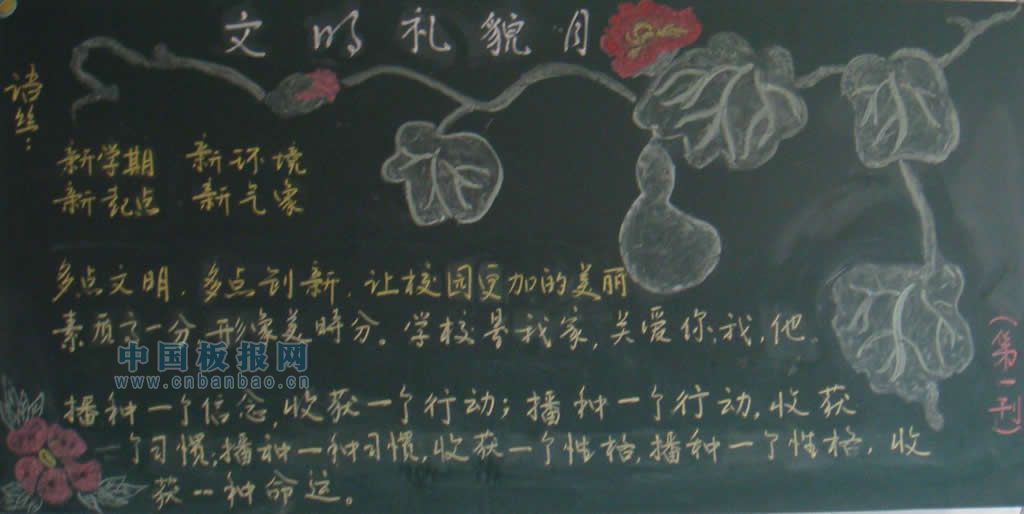 文明礼貌月
诗丝:
新学期 新环境
新起点 新气象
多点文明，多点创新，让校园更加的美丽
素质高一分形象美时分。学校是我家，关爱你、我、他。
中国板报网
www.cnbanbao.cn
播种一个信念，收获一个行动；播种一个行动，收获
一个习惯；播种一种习惯，收获一个性格，播种一个性格，收
获一种命运。
(第一刊)